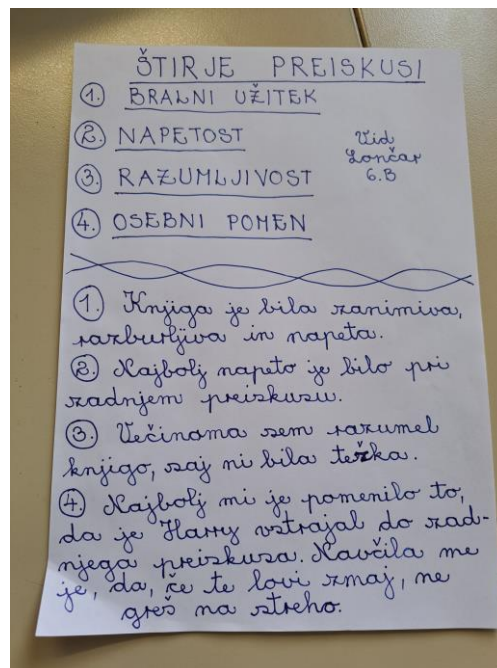 ŠTIRJE PREISKUSI
1. BRALNI UŽITEK
2. NAPETOST
Vid
Lončar
6.B
3. RAZUMLJIVOST
4. OSEBNI POMEN
1. Knjiga je bila zanimiva,
razburljiva in napeta.
2. Najbolj napeto je bilo pri
zadnjem preizkusu.
3. Večinoma sem razumel
knjigo, saj ni bila težka.
4. Najbolj mi je pomenilo to,
da je Harry vztrajal do zad-
njega preizkusa. Navčila me
je, da, če te lovi zmaj, ne
greš na streho.